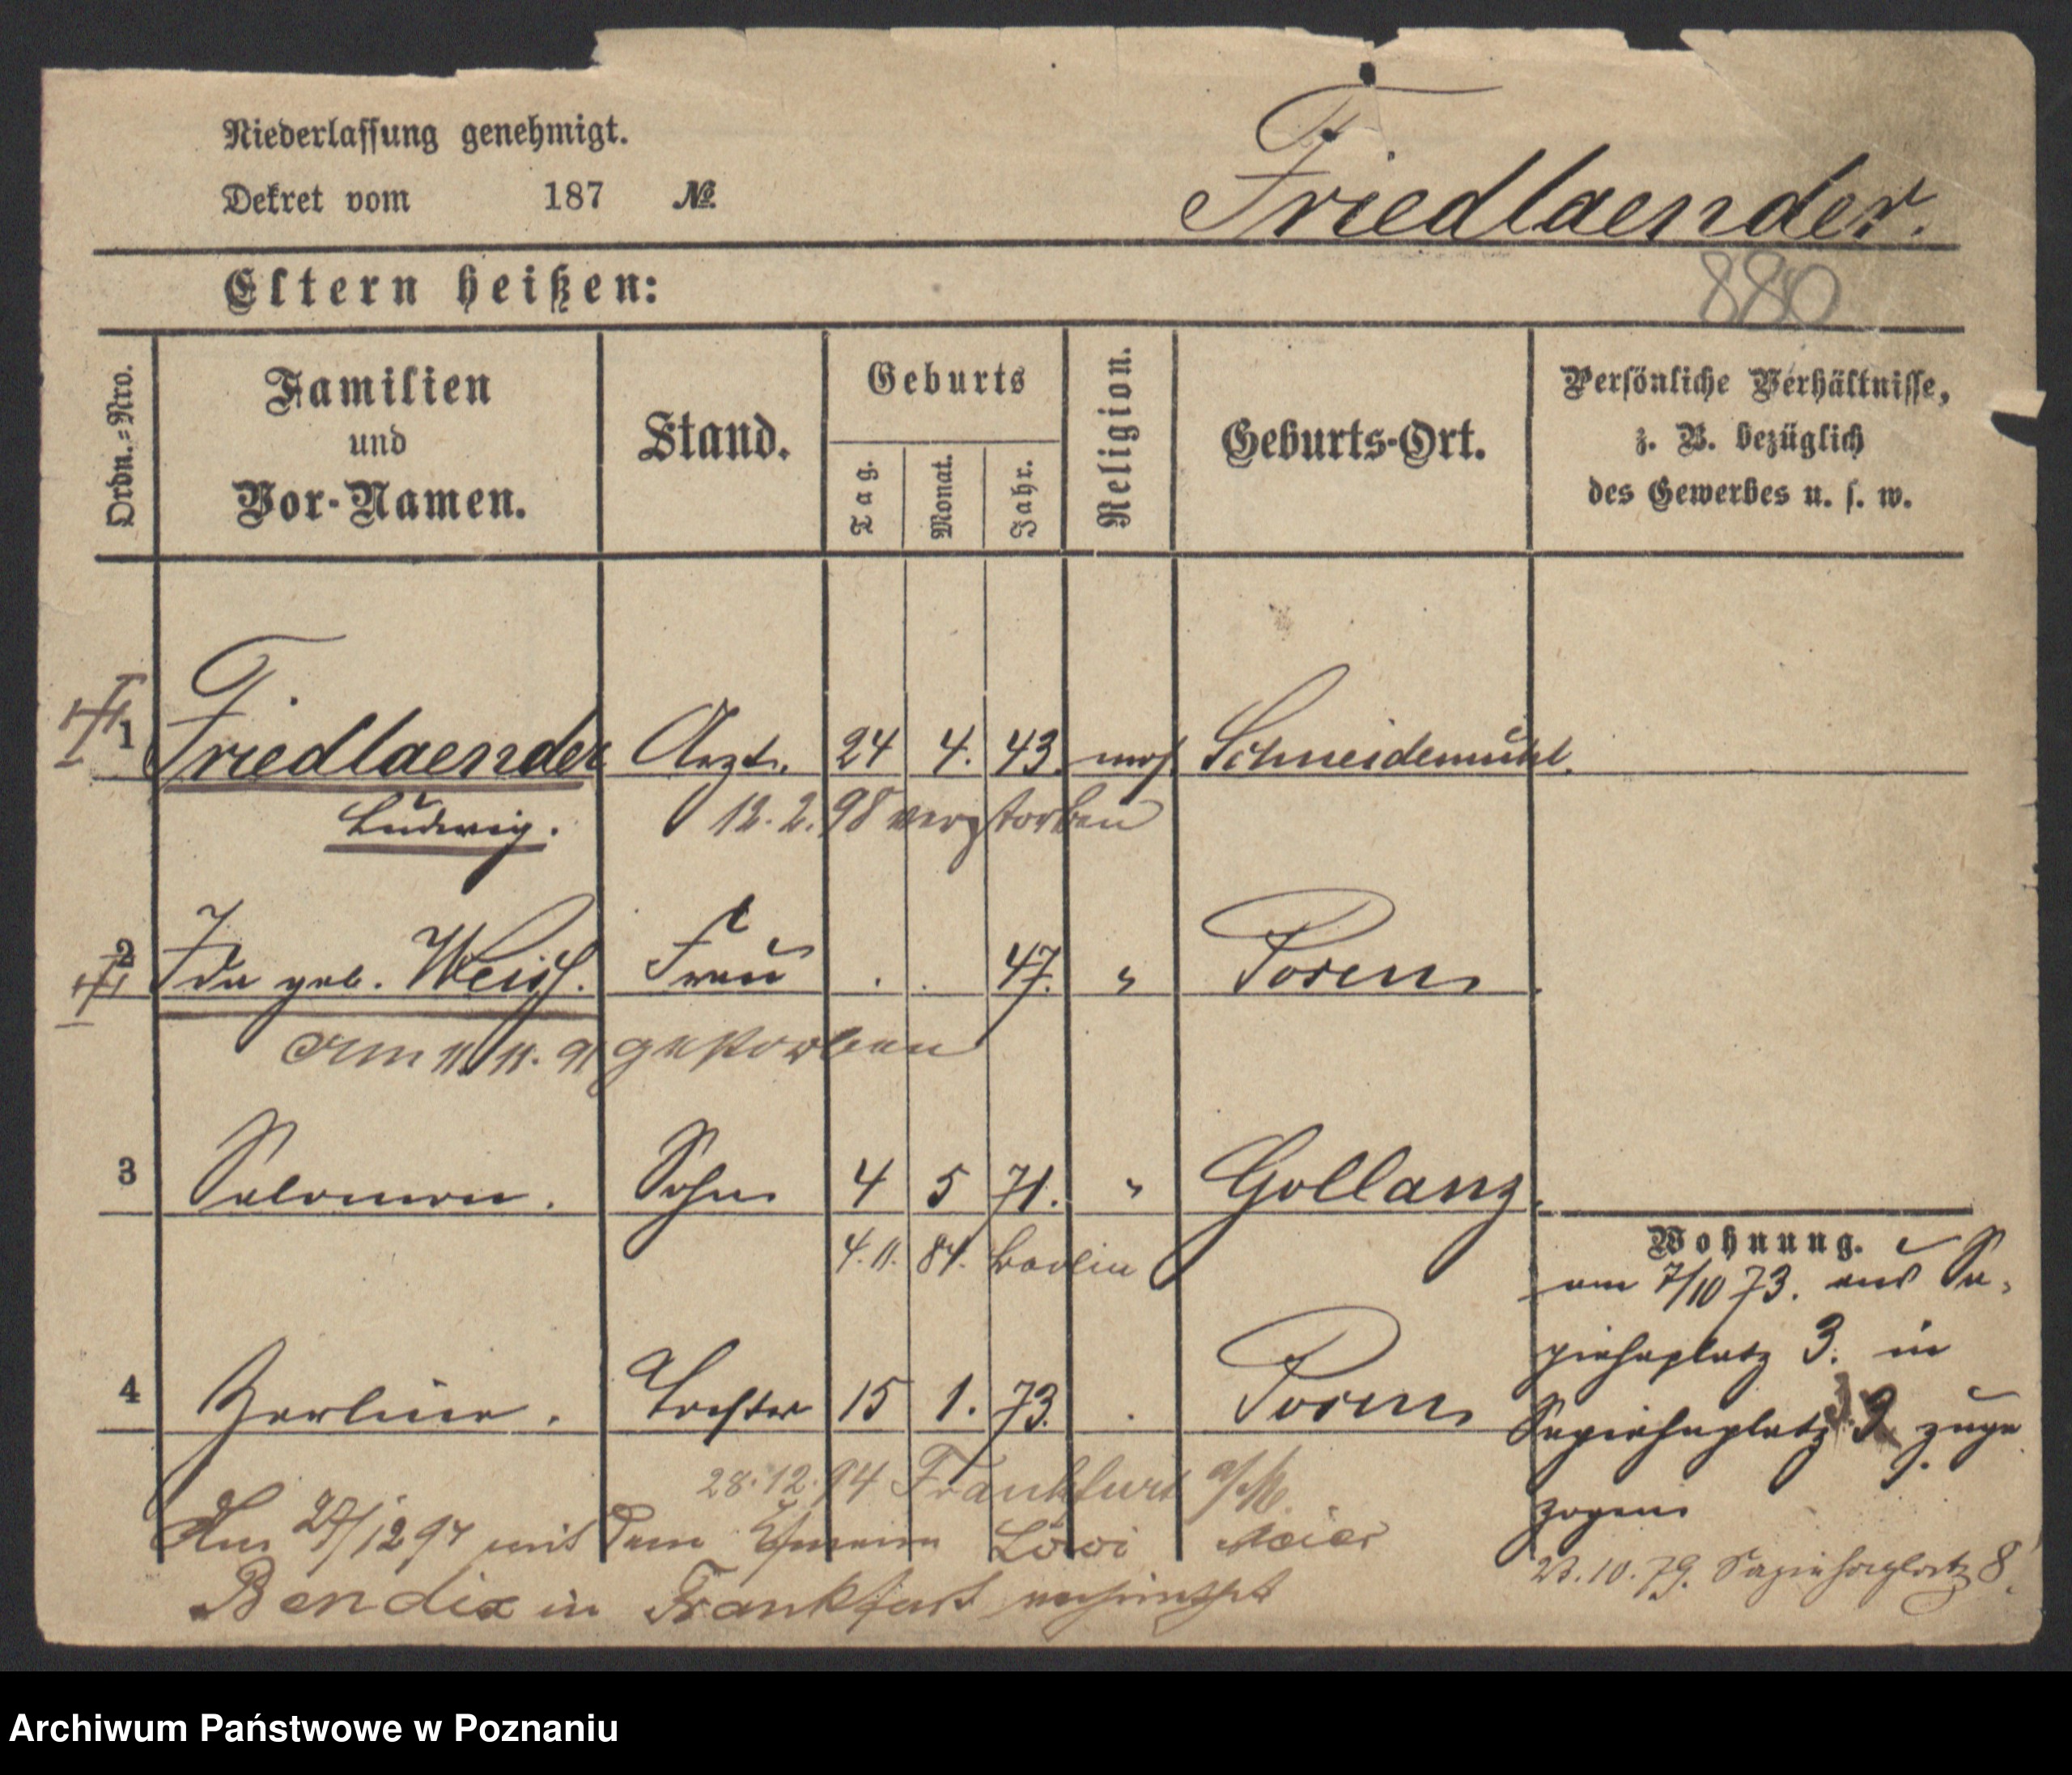 Niederlassung genehmigt.
Dekret vom 187 №
Friedlaender.
880
Eltern heißen:
Ordn.-Nro.
Familien
und
Vor-Namen.
Stand.
Geburts
Tag.
Monat.
Jahr.
Religion.
Geburts-Ort.
Persönliche Verhältnisse,
z. B. bezüglich
des Gewerbes u. s. w.
1 Friedlaender Arzt. 24 4. 43. mos. Schneidemühl.
Ludwig. 12. 2. 98 verstorben
2 Ida geb. Weiss. Frau 47. " Posen
Am 11. 11. 91 gestorben
3 Salomon. Sohn 4 5 71. " Gollanz.
4. 11. 84. Berlin
4 Tochter 15 1. 73. Posen
28. 12. 94 Frankfurt a/M.
Am 27/12 94 mit dem Löwi Meier
Bendix in Frankfurt
Wohnung.
am 7/10 73. aus Sa-
piehaplatz 3. in
Sapiehaplatz 9 zuge
zogen
23. 10. 79. Sapiehaplatz 8.
Archiwum Państwowe w Poznaniu